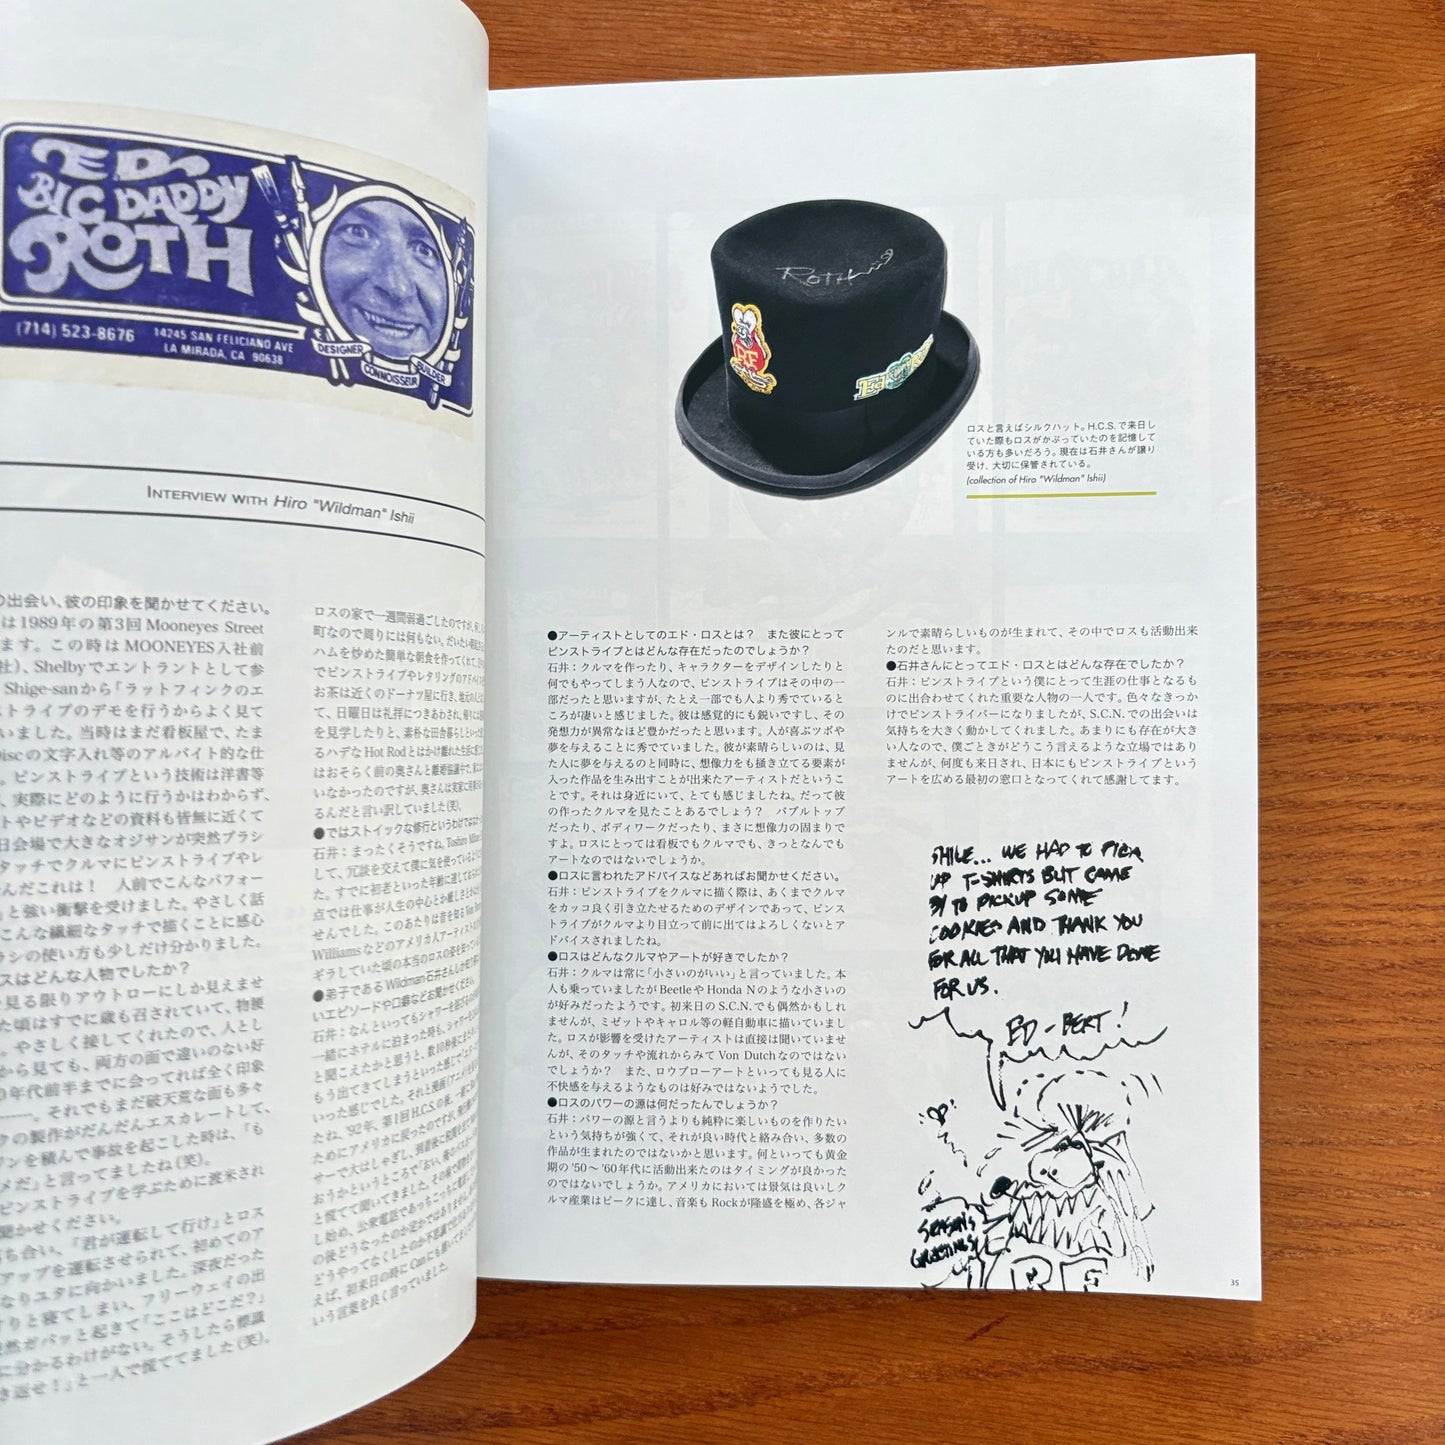 ED
BIG DADDY
ROTH
(714) 523-8676
14245 SAN FELICIANO AVE
LA MIRADA, CA 90638
DESIGNER
CONNOISSEUR
BUILDER
INTERVIEW WITH Hiro "Wildman" Ishii
の出会い、彼の印象を聞かせてください。
は1989年の第3回Mooneyes Street
ます。この時はMOONEYES入社前
社)、Shelbyでエントラントとして参
Shige-sanから「ラットフィンクのエ
ストライプのデモを行うからよく見て
いました。当時はまだ看板屋で、たま
Discの文字入れ等のアルバイト的な仕
。ピンストライプという技術は洋書等
、実際にどのように行うかはわからず、
トやビデオなどの資料も皆無に近くて
日会場で大きなオジサンが突然ブラシ
タッチでクルマにピンストライプやレ
んだこれは！ 人前でこんなパフォー
」と強い衝撃を受けました。やさしく話
こんな繊細なタッチで描くことに感心
ラシの使い方も少しだけ分かりました。
スはどんな人物でしたか？
見る限りアウトローにしか見えませ
た頃はすでに歳も召されていて、物腰
。やさしく接してくれたので、人とし
から見ても、両方の面で違いのない好
年代前半までに会ってれば全く印象
。それでもまだ破天荒な面も多々
クの製作がだんだんエスカレートして、
ンを積んで事故を起こした時は、「も
メだ」と言ってましたね（笑）。
ピンストライプを学ぶために渡米され
聞かせください。
ち合い、「君が運転して行け」とロス
アップを運転させられて、初めてのア
なりユタに向かいました。深夜だった
すりと寝てしまい、フリーウェイの出
然ガバッと起きて「ここはどこだ？」
に分かるわけがない。そうしたら標識
き返せ！」と一人で慌ててました（笑）。
ロスの家で一週間弱過ごしたのですが、
町なので周りには何もない。だいたい
ハムを炒めた簡単な朝食を作ってくれて、
でピンストライプやレタリングのアドバイス
お茶は近くのドーナツ屋に行き、地元の
て、日曜日は礼拝につきあわされ、帰りは
を見学したりと、素朴な田舎暮らしといった
るハデなHot Rodとはかけ離れた生活に
はおそらく前の奥さんと離婚協議中で、家には
いなかったのですが、奥さんは実家に
るんだと言い訳していました（笑）。
●ではストイックな修行というわけではなかった
石井：まったくそうですね。
して、冗談を交えて僕に気を使っているように
た。すでに初老といった年齢に達して
点では仕事が人生の中心とか厳しさとかは
せんでした。このあたりは昔を知る
Williamsなどのアメリカ人アーティスト
ギラしていた頃の本当のロスの姿を知っている
●弟子であるWildman石井さんしか知り
いエピソードや口癖などお聞かせください。
石井：なんといってもシャワーを浴びるのが
一緒にホテルに泊まった時も、シャワーを
と聞こえたかと思うと、数10秒後に
もう出てきてしまうといった感じで
いった感じでした。それと漫画（アニメ
たね。'92年、第1回H.C.S.の後、一緒に
ためにアメリカに戻ったのですが、飛行機
サーで大はしゃぎし、到着後に税関を
おうかというところで「おい、俺の
と慌てて聞いてきました。その後で荷物を
し始め、公衆電話であっちこっちに電話
の後どうなったのか定かではありません
どうやってなくしたのか不思議で仕方
えば、初来日の時にCanにも書いて
いう言葉を良く言っていました。
ROTH
RF
ロスと言えばシルクハット。H.C.S.で来日し
ていた際もロスがかぶっていたのを記憶して
いる方も多いだろう。現在は石井さんが譲り
受け、大切に保管されている。
(collection of Hiro "Wildman" Ishii)
●アーティストとしてのエド・ロスとは？ また彼にとって
ピンストライプとはどんな存在だったのでしょうか？
石井：クルマを作ったり、キャラクターをデザインしたりと
何でもやってしまう人なので、ピンストライプはその中の一
部だったと思いますが、たとえ一部でも人より秀でていると
ころが凄いと感じました。彼は感覚的にも鋭いですし、その
発想力が異常なほど豊かだったと思います。人が喜ぶツボや
夢を与えることに秀でていました。彼が素晴らしいのは、見
た人に夢を与えるのと同時に、想像力をも掻き立てる要素が
入った作品を生み出すことが出来たアーティストだというこ
とです。それは身近にいて、とても感じましたね。だって彼
の作ったクルマを見たことあるでしょう？ バブルトップ
だったり、ボディワークだったり、まさに想像力の固まりで
すよ。ロスにとっては看板でもクルマでも、きっとなんでも
アートなのではないでしょうか。
●ロスに言われたアドバイスなどあればお聞かせください。
石井：ピンストライプをクルマに描く際は、あくまでクルマ
をカッコ良く引き立たせるためのデザインであって、ピンス
トライプがクルマより目立って前に出てはよろしくないとア
ドバイスされましたね。
●ロスはどんなクルマやアートが好きでしたか？
石井：クルマは常に「小さいのがいい」と言っていました。本
人も乗っていましたがBeetleやHonda Nのような小さいの
が好みだったようです。初来日のS.C.N.でも偶然かもしれ
ませんが、ミゼットやキャロル等の軽自動車に描いていまし
た。ロスが影響を受けたアーティストは直接は聞いていませ
んが、そのタッチや流れからみてVon Dutchなのではない
でしょうか？ また、ロウブローアートといっても見る人に
不快感を与えるようなものは好みではないようでした。
●ロスのパワーの源は何だったんでしょうか？
石井：パワーの源と言うよりも純粋に楽しいものを作りたい
という気持ちが強くて、それが良い時代と絡み合い、多数の
作品が生まれたのではないかと思います。何といっても黄金
期の'50〜'60年代に活動出来たのはタイミングが良かった
のではないでしょうか。アメリカにおいては景気は良いしク
ルマ産業はピークに達し、音楽もRockが隆盛を極め、各ジャ
ンルで素晴らしいものが生まれて、その中でロスも活動出来
たのだと思います。
●石井さんにとってエド・ロスとはどんな存在でしたか？
石井：ピンストライプという僕にとって生涯の仕事となるも
のに出合わせてくれた重要な人物の一人です。色々なきっか
けでピンストライパーになりましたが、S.C.N.での出会いは
気持ちを大きく動かしてくれました。あまりにも存在が大き
い人なので、僕ごときがどうこう言えるような立場ではあり
ませんが、何度も来日され、日本にもピンストライプという
アートを広める最初の窓口となってくれて感謝してます。
WHILE... WE HAD TO PICK
UP T-SHIRTS BUT CAME
BY TO PICKUP SOME
COOKIES AND THANK YOU
FOR ALL THAT YOU HAVE DONE
FOR US.
ED-BERT!
SEASON'S
GREETINGS
RF
35